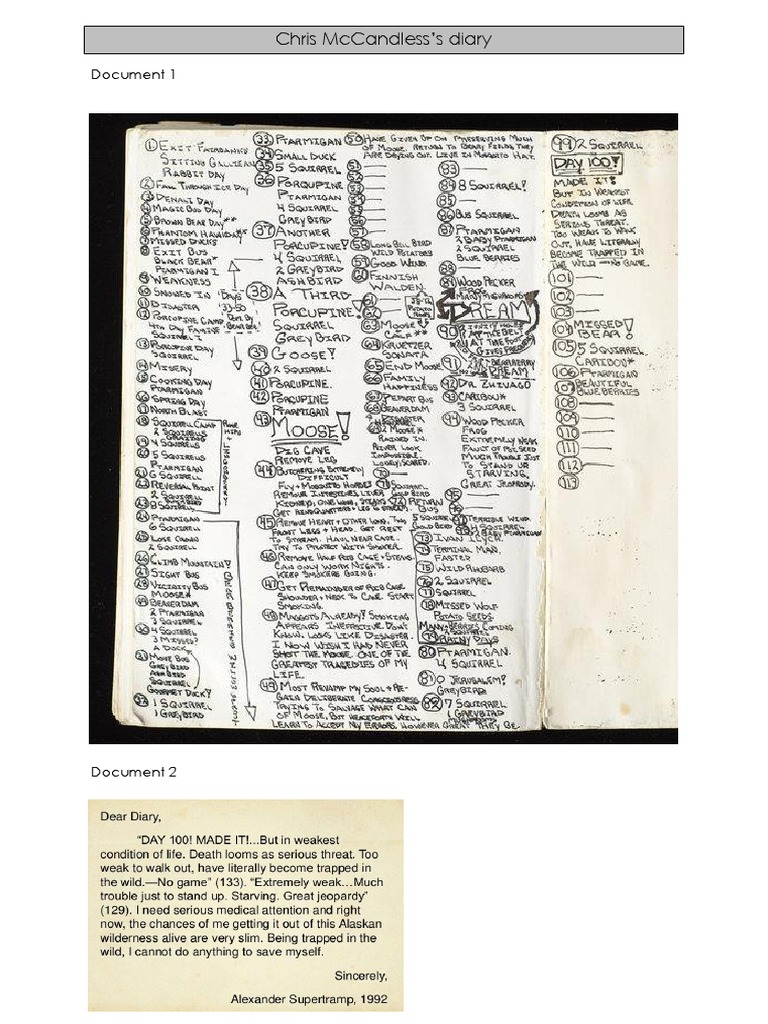 Chris McCandless's diary
Document 1
① EXIT FAIRBANKS
SITTING GALLIEAN
RABBIT DAY
② FALL THROUGH ICE DAY
③ DENALI DAY
④ MAGIC BUS DAY
⑤ BROWN BEAR DAY
⑦ MISSED DUCKS
⑧ EXIT BUS
BLACK BEAR
PTARMIGAN 1
⑨ WEAKNESS
⑩ SNOWED IN
⑪ DISASTER
⑫ PORCUPINE CAMP
4TH DAY FAMINE
⑬ PORCUPINE DAY
SQUIRREL
⑭ MISERY
⑮ COOKING DAY
PTARMIGAN
⑯ SPRING DAY
⑰ NORTH BLAST
⑱ SQUIRREL CAMP
⑲ 4 SQUIRRELS
⑳ 5 SQUIRRELS
PTARMIGAN
㉑ 6 SQUIRREL
2 SQUIRREL
㉔ PTARMIGAN
6 SQUIRREL
2 SQUIRREL
㉖ CLIMB MOUNTAIN!
㉗ SIGHT BUS
㉘ VICINITY BUS
MOOSE
㉙ BEAVERDAM
2 PTARMIGAN
3 SQUIRREL
4 SQUIRREL
A DUCK
㉛ MOVE BUS
GREY BIRD
ASH BIRD
SQUIRREL
GOURMET DUCK!
㉜ 1 SQUIRREL
1 GREYBIRD
㉝ PTARMIGAN
㉞ SMALL DUCK
㉟ 5 SQUIRREL
㊱ PORQUPINE
PTARMIGAN
4 SQUIRREL
GREY BIRD
㊲ ANOTHER
PORCUPINE!
4 SQUIRREL
2 GREYBIRD
ASHBIRD
㊳ A THIRD
PORCUPINE!
SQUIRREL
GREY BIRD
㊴ GOOSE!
㊵ 2 SQUIRREL
㊶ PORCUPINE.
㊷ PORCUPINE
PTARMIGAN
㊸ MOOSE!
DIG CAVE
REMOVE LEG
㊹ BUTCHERING EXTREMELY
DIFFICULT
FLY + MOSQUITO HORDES
REMOVE INTESTINES, LIVER
KIDNEY, ONE LUNG, STEAKS
㊺ REMOVE HEART + OTHER LUNG, TWO
FRONT LEGS + HEAD. GET REST
TO STREAM. HAUL NEAR CAVE.
TRY TO PROTECT WITH SMOKER.
㊻ REMOVE HALF RIB CAGE + STEAKS
CAN ONLY WORK NIGHTS.
KEEP SMOKERS GOING.
㊼ GET REMAINDER OF RIB CAGE
SHOULDER + NECK TO CAVE. START
SMOKING.
㊽ MAGGOTS ALREADY! SMOKING
APPEARS INEFFECTIVE. DON'T
KNOW. LOOKS LIKE DISASTER.
I NOW WISH I HAD NEVER
SHOT THE MOOSE. ONE OF THE
GREATEST TRAGEDIES OF MY
LIFE.
㊾ MOST REVAMP MY SOUL + RE-
GAIN DELIBERATE CONSCIOUSNESS
TRYING TO SALVAGE WHAT CAN
OF MOOSE, BUT HENCEFORTH WILL
LEARN TO ACCEPT MY ERRORS, HOWEVER GREAT THEY BE.
㊿ HAVE GIVEN UP ON PRESERVING MUCH
OF MOOSE.
(58) LONG BILL BIRD
WILD POTATOES
(59) GOOD WIND
(60) FINNISH
WALDEN.
(61)
(62)
(63) MOOSE
CALF
(64) KRUETZER
SONATA
(65) END MOOSE
(66) FAMILY
HAPPINESS
(67) DEPART BUS
(68) BEAVERDAM
(69) DISASTER
RAINED IN.
RIVER LOOK
IMPOSSIBLE.
LONELY, SCARED.
(72) RETURN
BUS
(73) IVAN ILYCH.
(74) TERMINAL MAN,
FASTER
(75) WILD RHUBARB
(76) 2 SQUIRREL
(77) SQUIRREL
(78) MISSED WOLF
POTATO SEEDS
MANY BERRIES COMING
(79) RAINY DAYS
(80) PTARMIGAN.
4 SQUIRREL
(81) O JERUSALEM!
GREYBIRD
(82) 7 SQUIRREL
1 GREYBIRD
(83)
(84) 8 SQUIRREL!
(85)
(86) BUS SQUIRREL
(87) PTARMIGAN
2 BABY PTARMIGAN
2 SQUIRREL
BLUE BERRIES
(88)
(89) WOOD PECKER
FROG
DREAM
(90)
(91)
DREAM
(92) DR. ZHIVAGO
(93) CARIBOU
3 SQUIRREL
(94) WOOD PECKER
FROG
EXTREMELY WEAK
FAULT OF POT. SEED
MUCH TROUBLE JUST
TO STAND UP
STARVING.
GREAT JEOPARDY.
(95)
TERRIBLE WIND
(99) 2 SQUIRREL
DAY 100!
MADE IT!
BUT IN WEAKEST
CONDITION OF LIFE
DEATH LOOMS AS
SERIOUS THREAT.
TOO WEAK TO WALK
OUT, HAVE LITERALLY
BECOME TRAPPED IN
THE WILD —NO GAME.
(101)
(102)
(103)
(104) MISSED BEAR!
(105) 5 SQUIRREL
CARIBOU
(106) PTARMIGAN
(107) BEAUTIFUL
BLUE BERRIES
(108)
(109)
(110)
(111)
(112)
(113)
Document 2
Dear Diary,
"DAY 100! MADE IT!...But in weakest
condition of life. Death looms as serious threat. Too
weak to walk out, have literally become trapped in
the wild.—No game" (133). "Extremely weak…Much
trouble just to stand up. Starving. Great jeopardy"
(129). I need serious medical attention and right
now, the chances of me getting it out of this Alaskan
wilderness alive are very slim. Being trapped in the
wild, I cannot do anything to save myself.
Sincerely,
Alexander Supertramp, 1992